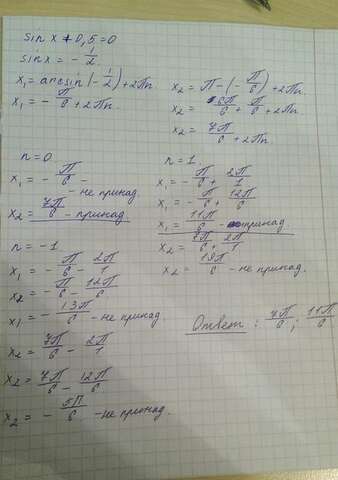 sin x + 0,5 = 0
sin x = - 1/2
x₁ = arcsin(- 1/2) + 2πn
x₁ = - π/6 + 2πn
x₂ = π - (- π/6) + 2πn
x₂ = 6π/6 + π/6 + 2πn
x₂ = 7π/6 + 2πn
n = 0
x₁ = - π/6 -
- не принад
x₂ = 7π/6 - принад
n = -1
x₁ = - π/6 - 2π/1
x₂ = - π/6 - 12π/6
x₁ = - 13π/6 - не принад
x₂ = 7π/6 - 2π/1
x₂ = 7π/6 - 12π/6
x₂ = - 5π/6 - не принад.
n = 1.
x₁ = - π/6 + 2π/1
x₁ = - π/6 + 12π/6
x₁ = 11π/6 - принад
x₂ = 7π/6 + 2π/1
x₂ = 19π/6 - не принад.
Ответ : 7π/6 ; 11π/6